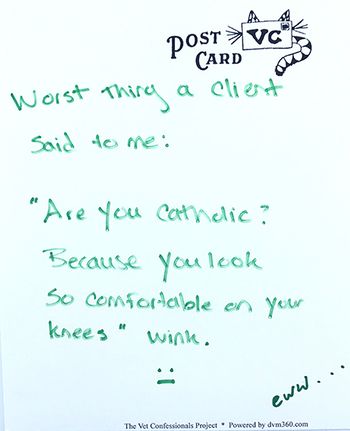 POST VC
CARD
Worst thing a client
Said to me:
"Are you catholic?
Because you look
so comfortable on your
knees" wink.
eww...
The Vet Confessionals Project * Powered by dvm360.com